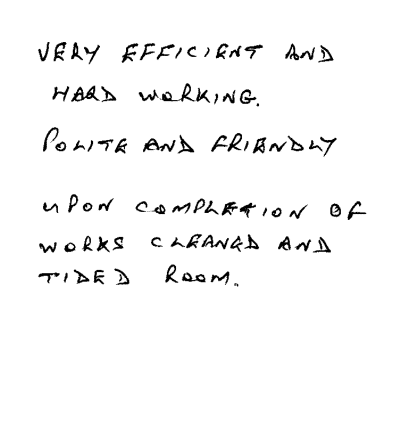 VERY EFFICIENT AND
HARD WORKING.
POLITE AND FRIENDLY
UPON COMPLETION OF
WORKS CLEANED AND
TIDED ROOM.